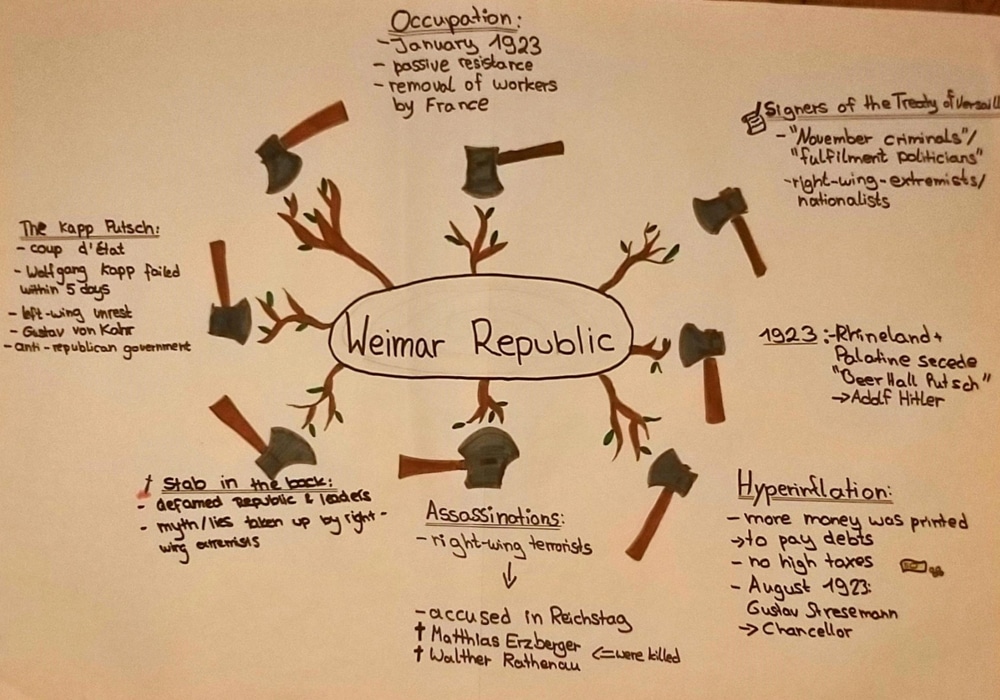 Occupation:
- January 1923
- passive resistance
- removal of workers
by France
Signers of the Treaty of Versaill
- "November criminals"/
"fulfilment politicians"
- right-wing-extremists/
nationalists
The Kapp Putsch:
- coup d'état
- Wolfgang Kapp failed
within 5 days
- left-wing unrest
- Gustav von Kahr
- anti-republican government
Weimar Republic
1923: - Rhineland +
Palatine secede
"Beer Hall Putsch"
→ Adolf Hitler
† Stab in the back:
- defamed Republic & leaders
- myth/lies taken up by right-
wing extremists
Assassinations:
- right-wing terrorists
↓
- accused in Reichstag
† Matthias Erzberger
† Walther Rathenau <= were killed
Hyperinflation:
- more money was printed
→ to pay debts
- no high taxes
- August 1923:
Gustav Stresemann
→ Chancellor